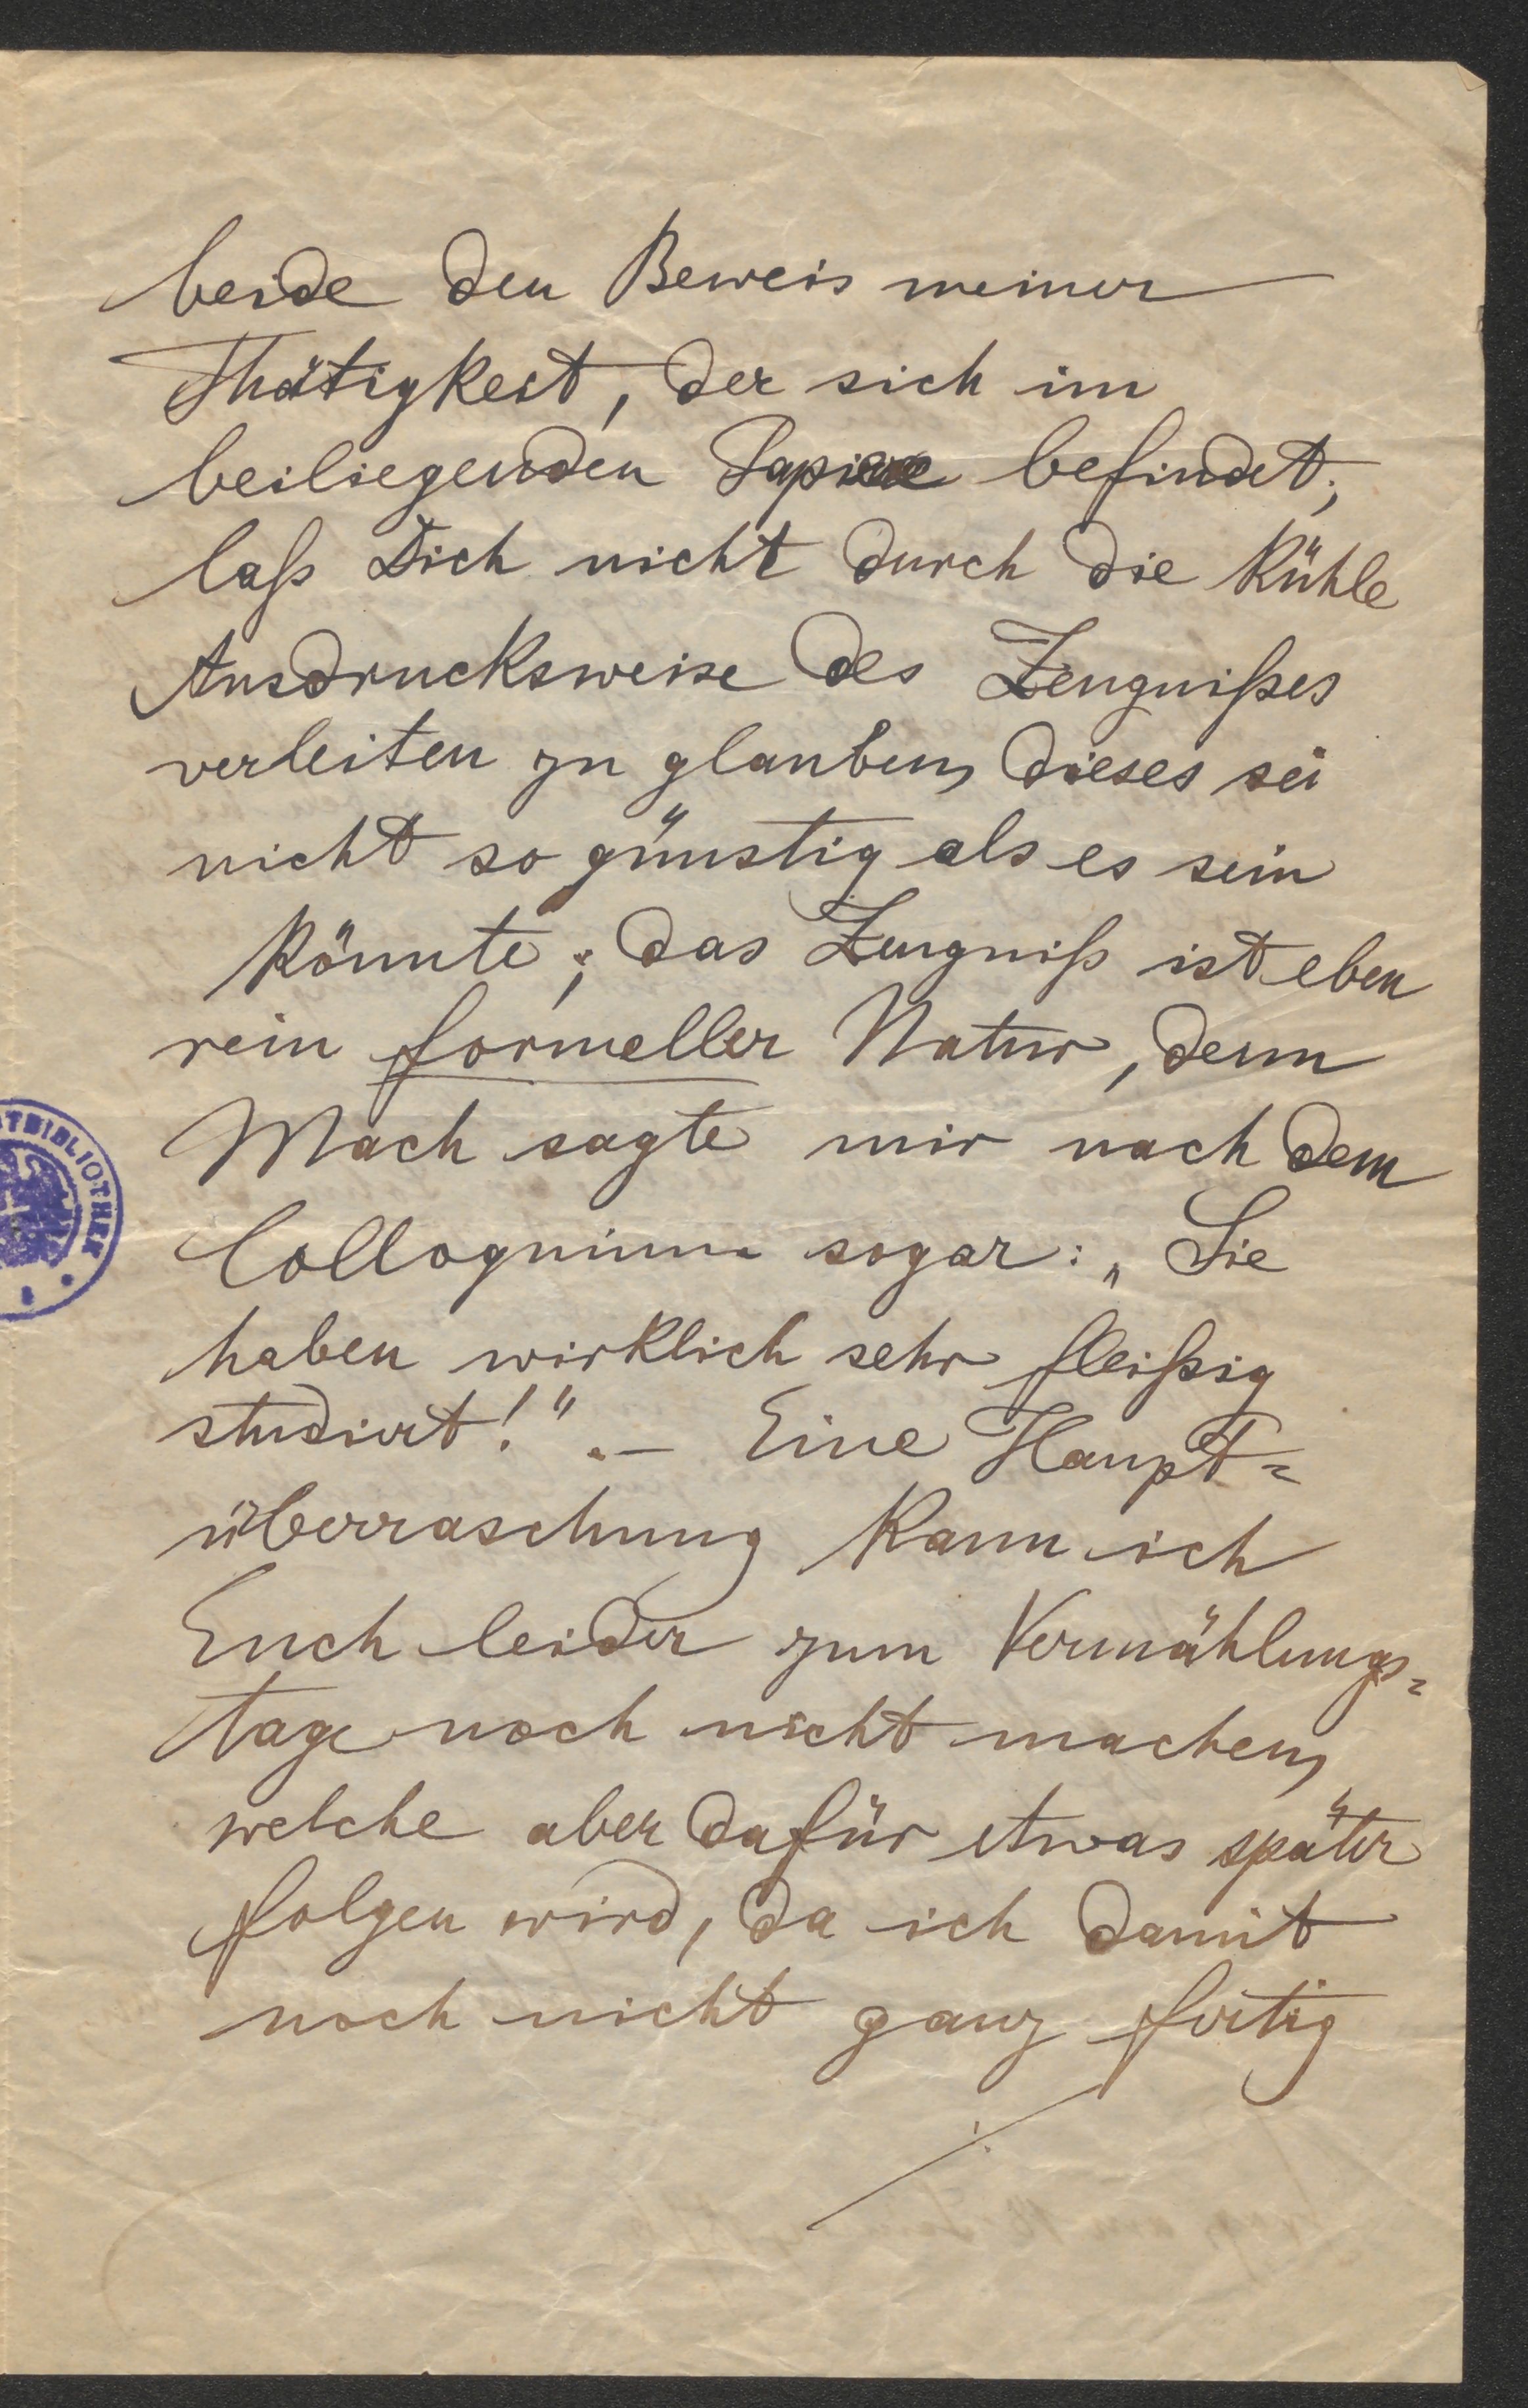 beide den Beweis meiner
Thätigkeit, der sich im
beiliegenden Papiere befindet;
laß Dich nicht durch die kühle
Ausdrucksweise des Zeugnißes
verleiten zu glauben, dieses sei
nicht so günstig als es sein
könnte; das Zeugniß ist eben
rein formeller Natur, denn
Mach sagte mir nach dem
Colloquium sogar: „Sie
haben wirklich sehr fleißig
studirt!“ .– Eine Haupt=
überraschung kann ich
Euch leider zum Vermählungs=
tage noch nicht machen,
welche aber dafür etwas später
folgen wird, da ich damit
noch nicht ganz fertig
./.
TBIBLIOTHEK